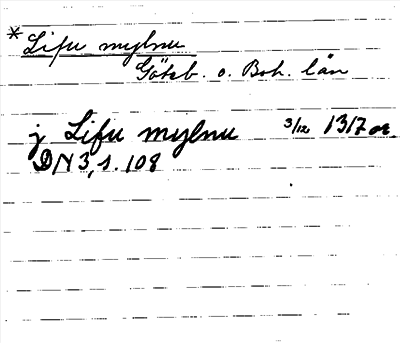 *Lifu mylnu
Göteb. o. Boh. län
j Lifu mylnu 3/12 1317 or.
DN 3, s. 108